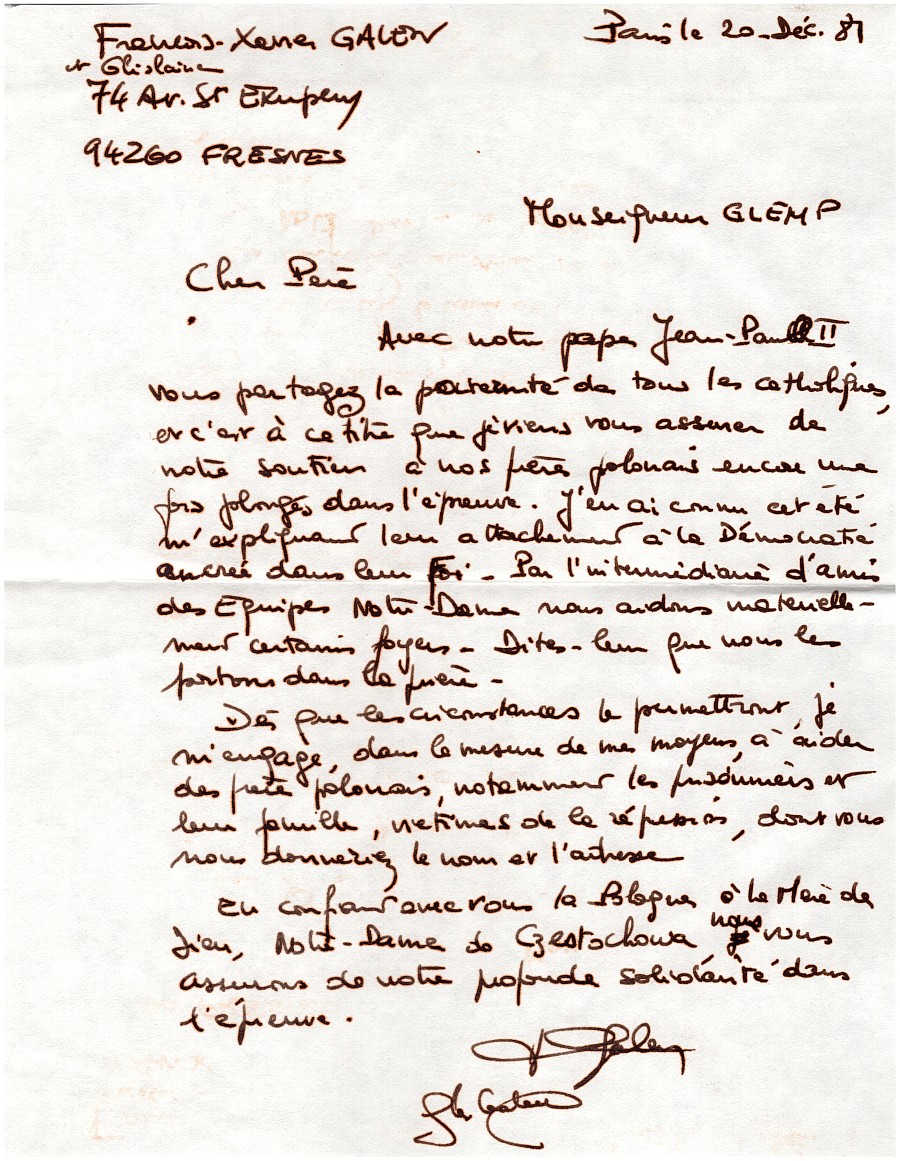 François-Xavier GALEN
et Ghislaine
74 Av. St Exupery
94260 FRESNES
Paris le 20 Déc. 81
Monseigneur GLEMP
Cher Père
Avec notre pape Jean-Paul II
vous partagez la paternité de tous les catholiques,
et c'est à ce titre que je viens vous assurer de
notre soutien à nos frères polonais encore une
fois plongés dans l'épreuve. J'en ai connu cet été
m'expliquant leur attachement à la Démocratie
ancrée dans leur Foi - Par l'intermédiaire d'amis
des Equipes Notre-Dame nous aidons matérielle-
ment certains foyers - Dites-leur que nous les
portons dans la prière -
Dès que les circonstances le permettront, je
m'engage, dans la mesure de mes moyens, à aider
des frère polonais, notamment les prisonniers et
leur famille, victimes de la répression, dont vous
nous donneriez le nom et l'adresse
En confiant avec vous la Pologne à la Mère de
Dieu, Notre-Dame de Czestochowa nous vous
assurons de notre profonde solidarité dans
l'épreuve.
Galen